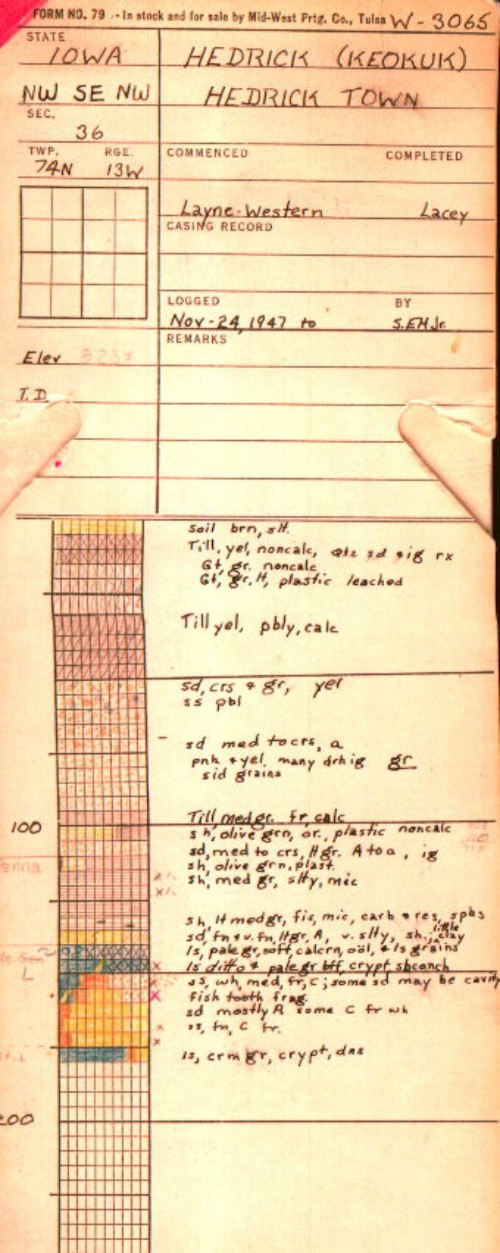 FORM NO. 79 - In stock and for sale by Mid-West Prtg. Co., Tulsa W-3065
STATE
IOWA HEDRICK (KEOKUK)
NW SE NW HEDRICK TOWN
SEC.
36
TWP. RGE. COMMENCED COMPLETED
74N 13W
Layne-Western Lacey
CASING RECORD
LOGGED BY
Nov-24, 1947 to S.E.H.Jr.
REMARKS
Elev 823±
T.D.
Soil brn, slt.
Till, yel, noncalc, qtz sd & ig rx
Gt, gr. noncalc
Gt, gr, lt, plastic leached
Till yel, pbly, calc
sd, crs & gr, yel
ss pbl
sd med to crs, a
pnk & yel. many drk ig gr
sid grains
Till, med gr. fr, calc
100 sh, olive grn, or., plastic noncalc
sd, med to crs, lt gr. A to a, ig
sh, olive grn, plast.
Penna sh, med gr, slty, mic
sh, lt med gr, fis, mic, carb & res, spks
sd, fn & v. fn, lt gr, A, v. slty, sh, little clay
ls, pale gr, soft, calcrn, oöl, & ls grains
ls ditto & pale gr bff, crypt, sbconch
L ss, wh, med, fr, C; some sd may be cavity
fish tooth frag.
sd mostly A some C fr wh
ss, fn, C fr.
St. L ls, crm gr, crypt, dns
200